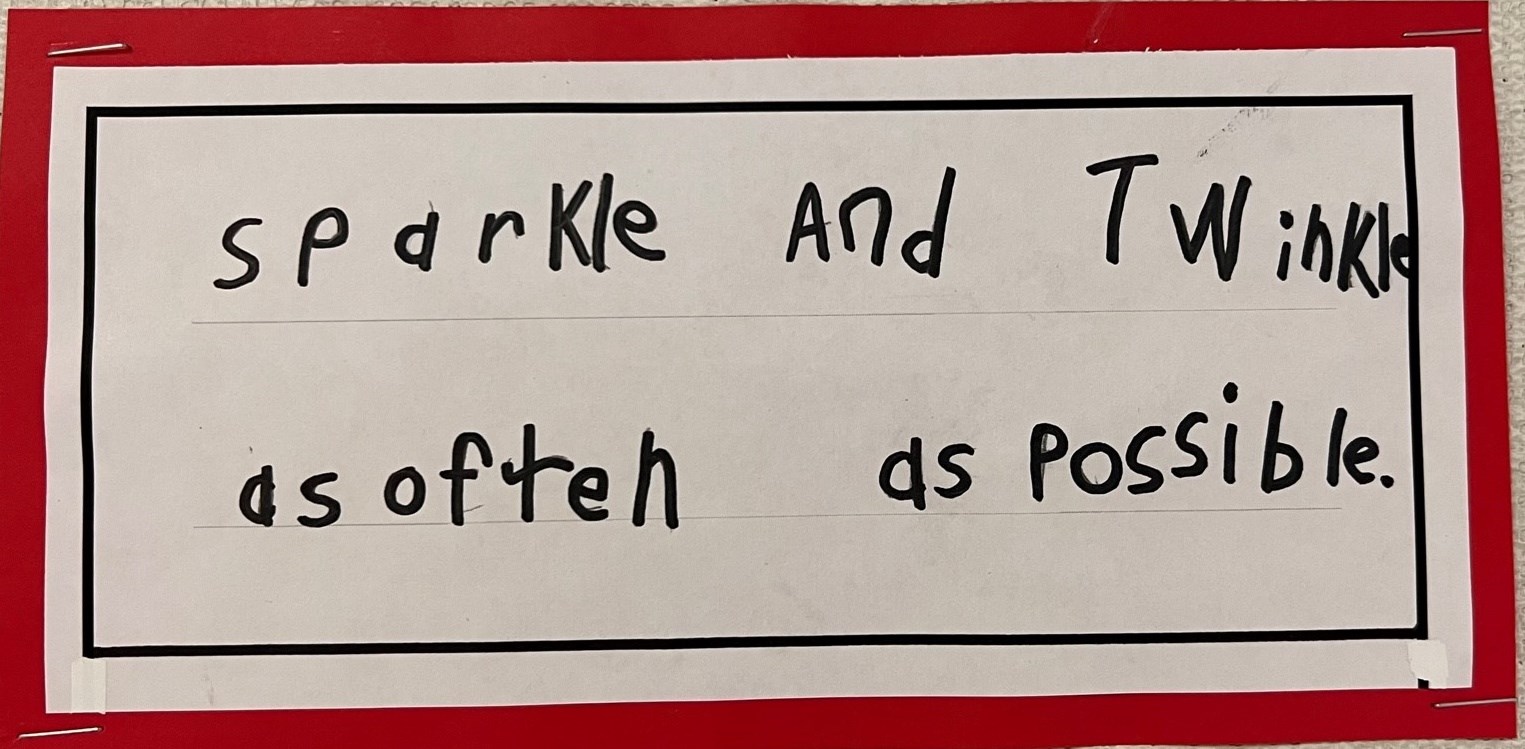 sparkle And TWinkle
as often as Possible.